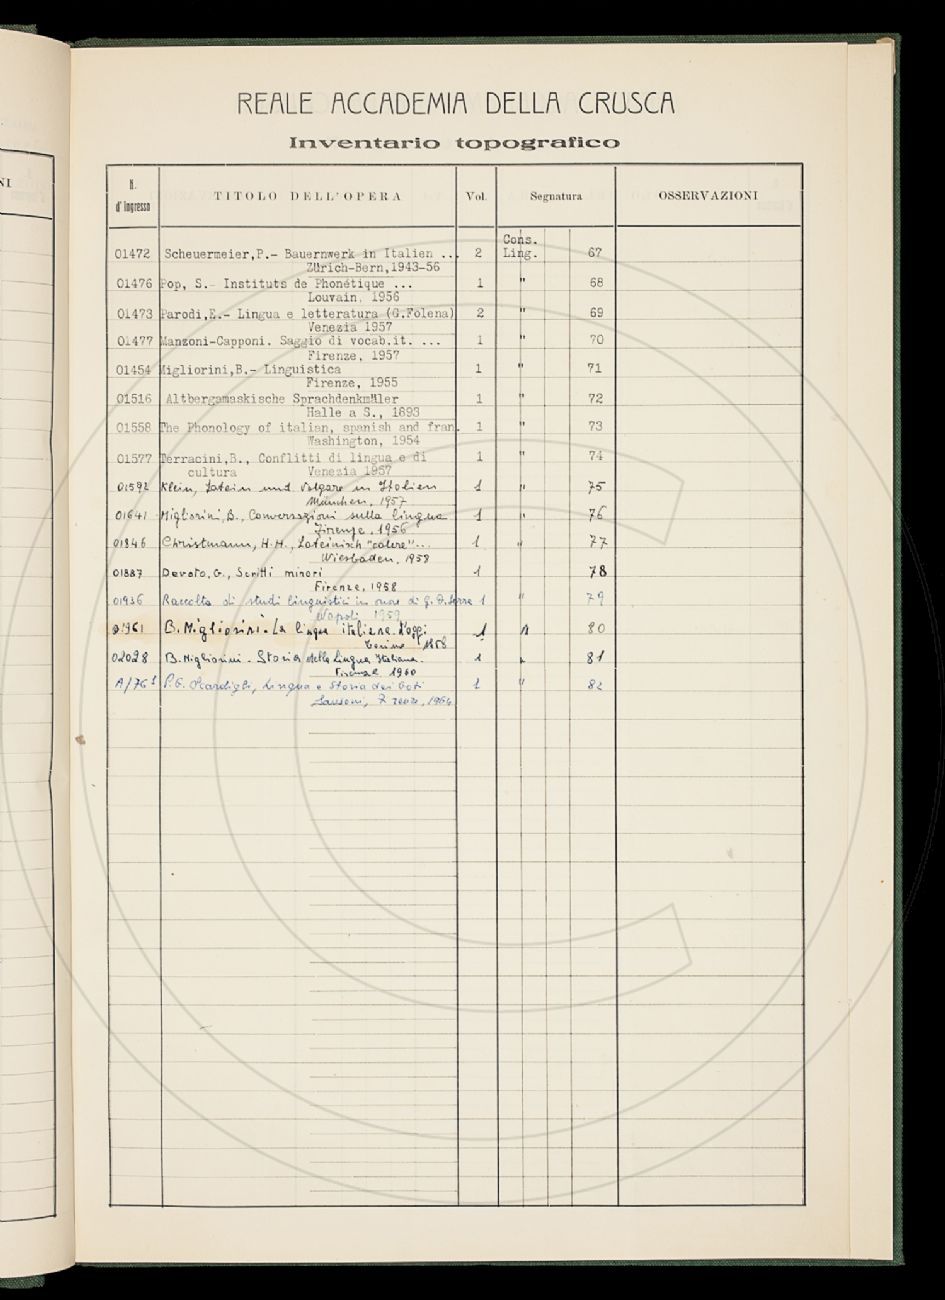 NI
REALE ACCADEMIA DELLA CRUSCA
Inventario topografico
N. d'ingresso TITOLO DELL'OPERA Vol. Segnatura OSSERVAZIONI
Cons.
01472 Scheuermeier,P.- Bauernwerk in Italien ... 2 Ling. 67
Zürich-Bern,1943-56
01476 Pop, S.- Instituts de Phonétique ... 1 " 68
Louvain, 1956
01473 Parodi,E.- Lingua e letteratura (G.Folena) 2 " 69
Venezia 1957
01477 Manzoni-Capponi. Saggio di vocab.it. ... 1 " 70
Firenze, 1957
01454 Migliorini,B.- Linguistica 1 " 71
Firenze, 1955
01516 Altbergamaskische Sprachdenkmäler 1 " 72
Halle a S., 1893
01558 The Phonology of italian, spanish and fran. 1 " 73
Washington, 1954
01577 Terracini,B., Conflitti di lingua e di 1 " 74
cultura Venezia 1957
01592 Klein, Latein und Volgare in Italien 1 " 75
München, 1957
01641 Migliorini, B., Conversazioni sulla lingua 1 " 76
Firenze, 1956
01846 Christmann, H.H., Lateinisch "calere"... 1 " 77
Wiesbaden, 1958
01887 Devoto, G., Scritti minori 1 78
Firenze, 1958
01936 Raccolta di studi linguistici in onore di G.D. Serra 1 " 79
Napoli 1959
01961 B. Migliorini - La lingua italiana d'oggi 1 " 80
Torino 1958
02028 B. Migliorini - Storia della Lingua Italiana. 1 " 81
Firenze 1960
A/761 P.G. Scardigli, Lingua e Storia dei Goti 1 " 82
Sansoni, Firenze, 1964